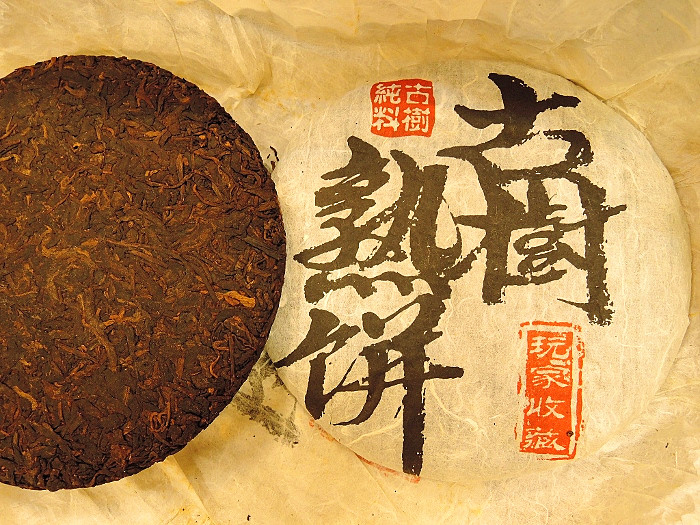 古樹
熟餅
古樹
純料
玩家收藏